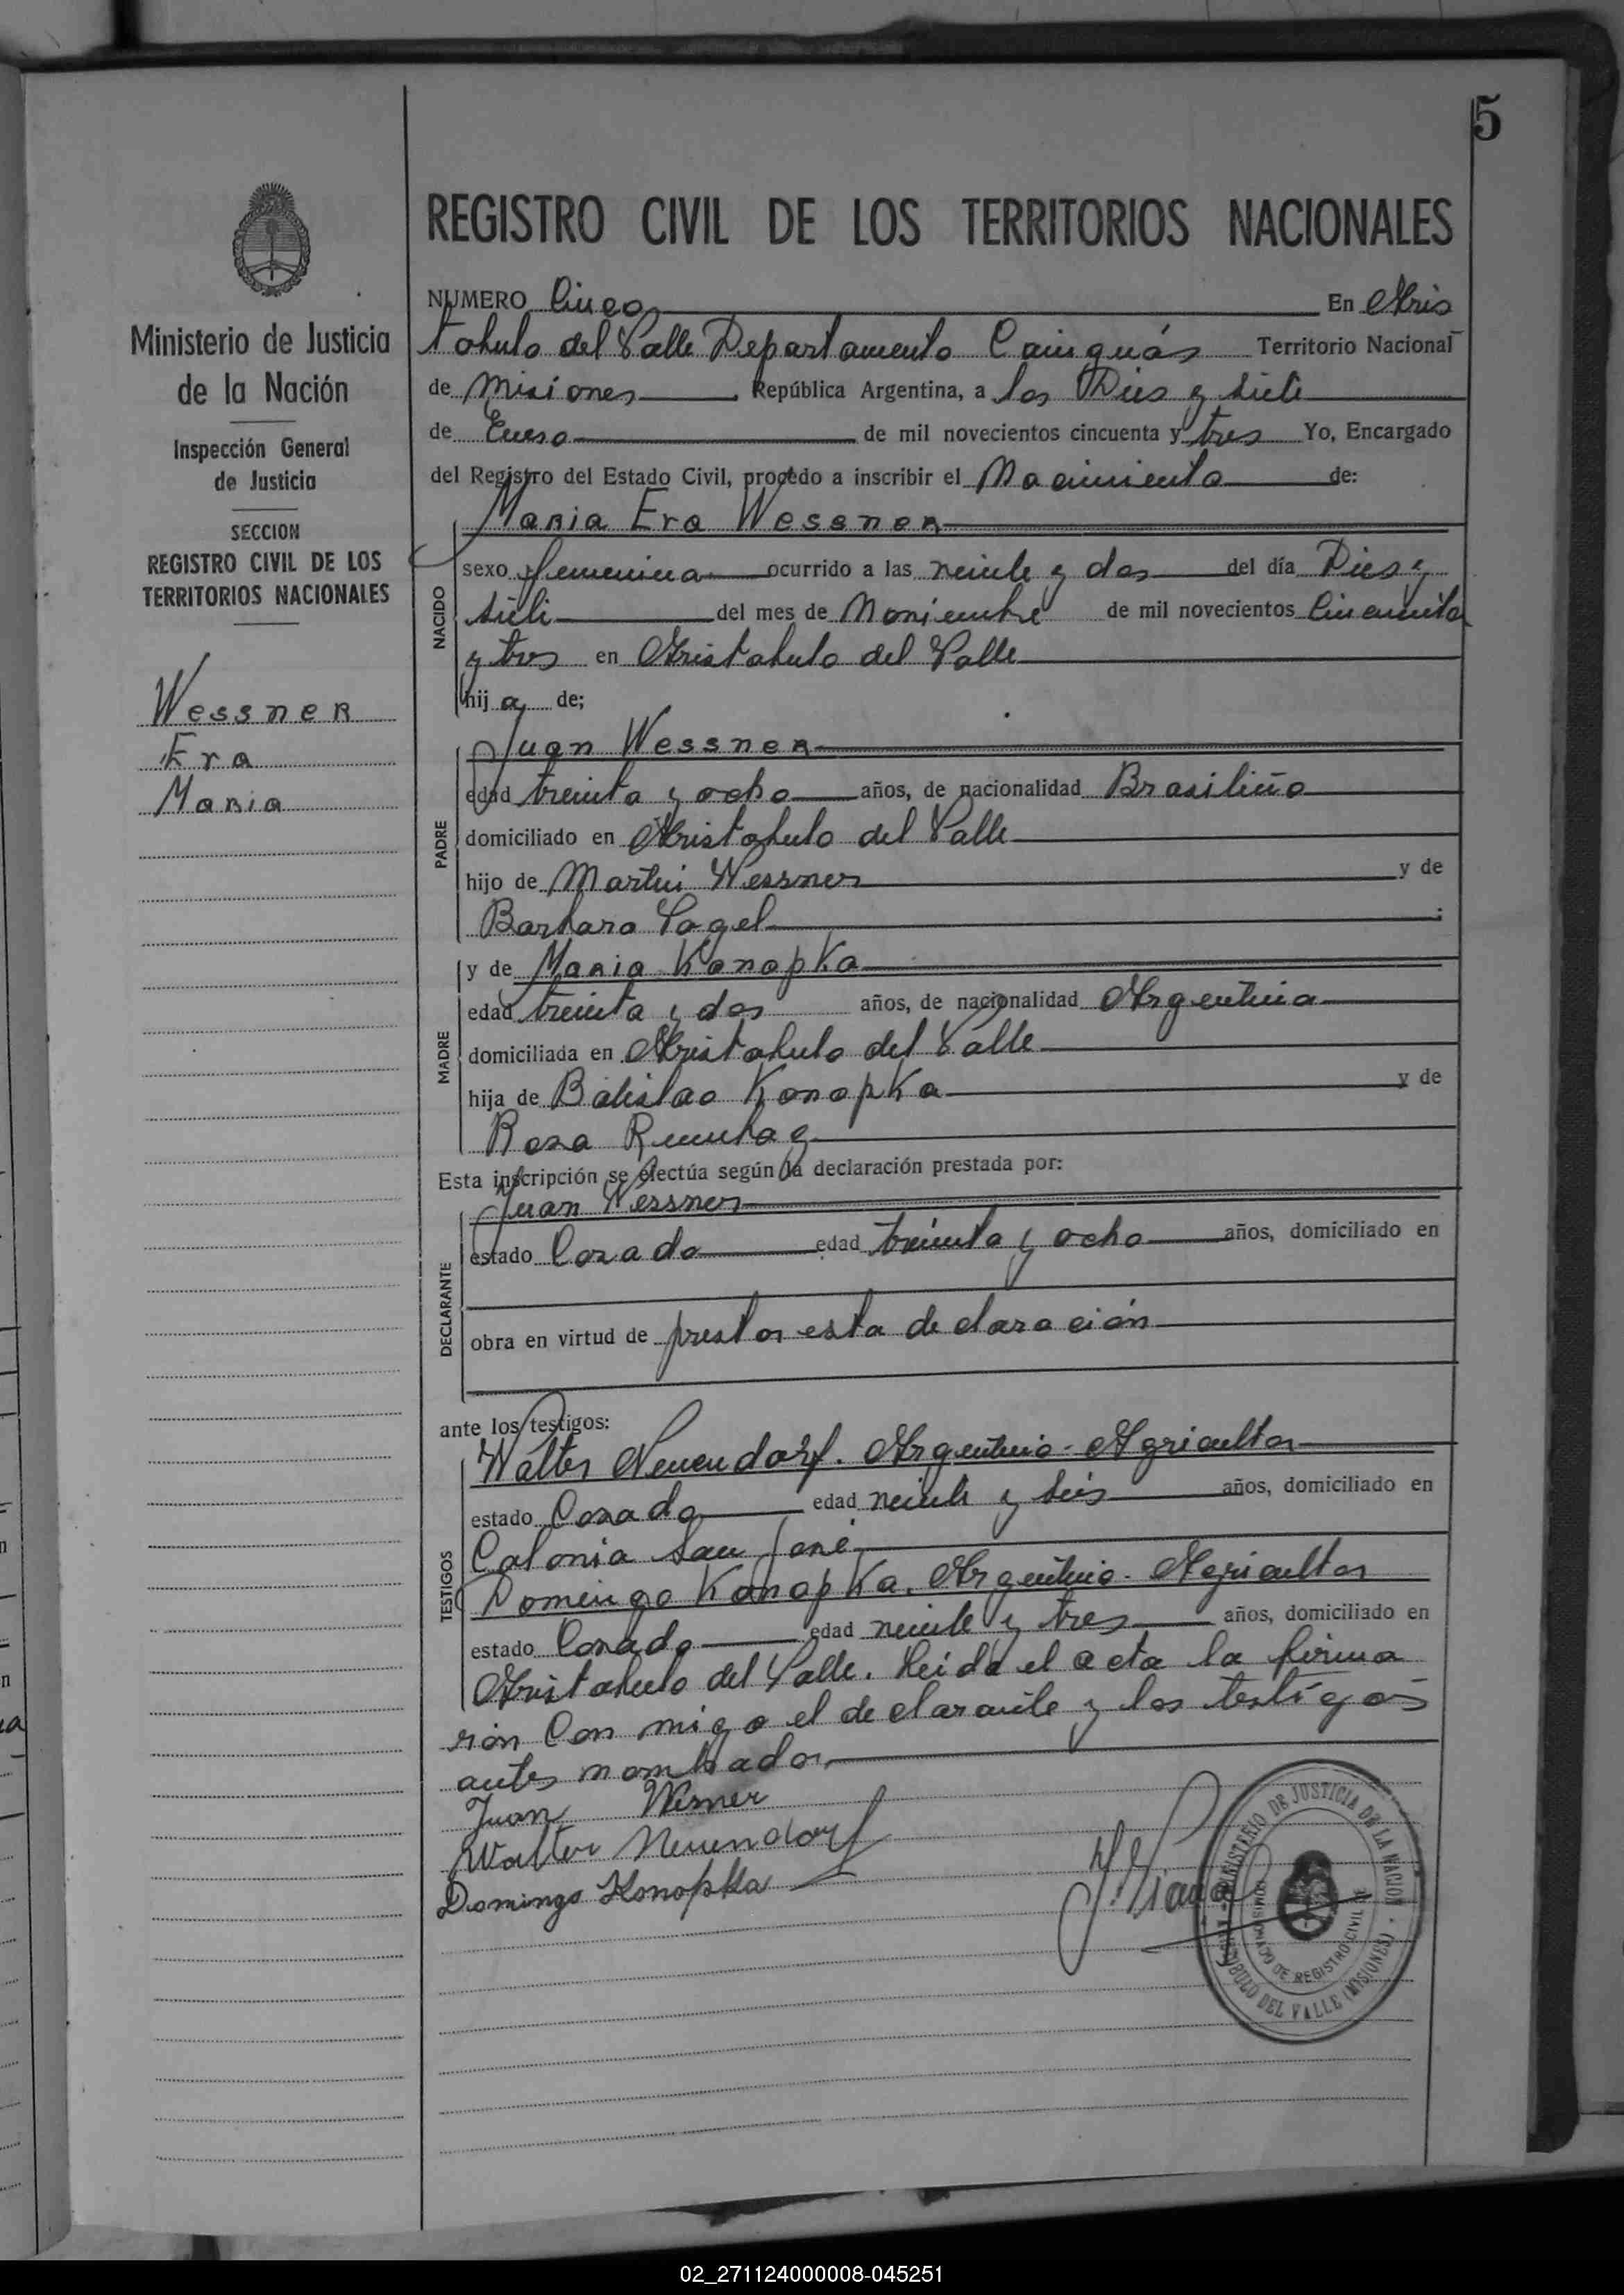 5
Ministerio de Justicia
de la Nación
Inspección General
de Justicia
SECCION
REGISTRO CIVIL DE LOS
TERRITORIOS NACIONALES
Wessner
Eva
Maria
REGISTRO CIVIL DE LOS TERRITORIOS NACIONALES
NUMERO Cinco En Aris
tobulo del Valle Departamento Cainguás Territorio Nacional
de Misiones República Argentina, a los Dies y siete
de Enero de mil novecientos cincuenta y tres Yo, Encargado
del Registro del Estado Civil, procedo a inscribir el Nacimiento de:
NACIDO
Maria Eva Wessner
sexo femenina ocurrido a las veinte y dos del día Dies y
siete del mes de Noviembre de mil novecientos Cincuenta
y tres en Aristobulo del Valle
hij a de;
PADRE
Juan Wessner
edad treinta y ocho años, de nacionalidad Brasiliño
domiciliado en Aristobulo del Valle
hijo de Martin Wessner y de
Barbara Vogel
MADRE
y de Maria Konopka
edad treinta y dos años, de nacionalidad Argentina
domiciliada en Aristobulo del Valle
hija de Bolislao Konopka y de
Rosa
Esta inscripción se efectúa según la declaración prestada por:
DECLARANTE
Juan Wessner
estado Casado edad treinta y ocho años, domiciliado en
obra en virtud de prestar esta declaración
ante los testigos:
TESTIGOS
Walter Neuendorf. Argentino - Agricultor
estado Casado edad veinte y seis años, domiciliado en
Colonia San José
Domingo Konopka. Argentino - Agricultor
estado Casado edad veinte y tres años, domiciliado en
Aristobulo del Valle. Leida el acta la firma
ron Con migo el declarante y los testigos
antes nombrados
Juan Wesner
Walter Neuendorf
Domingo Konopka
MINISTERIO DE JUSTICIA DE LA NACION
ARISTOBULO DEL VALLE (MISIONES)
DE REGISTRO CIVIL
02_271124000008-045251